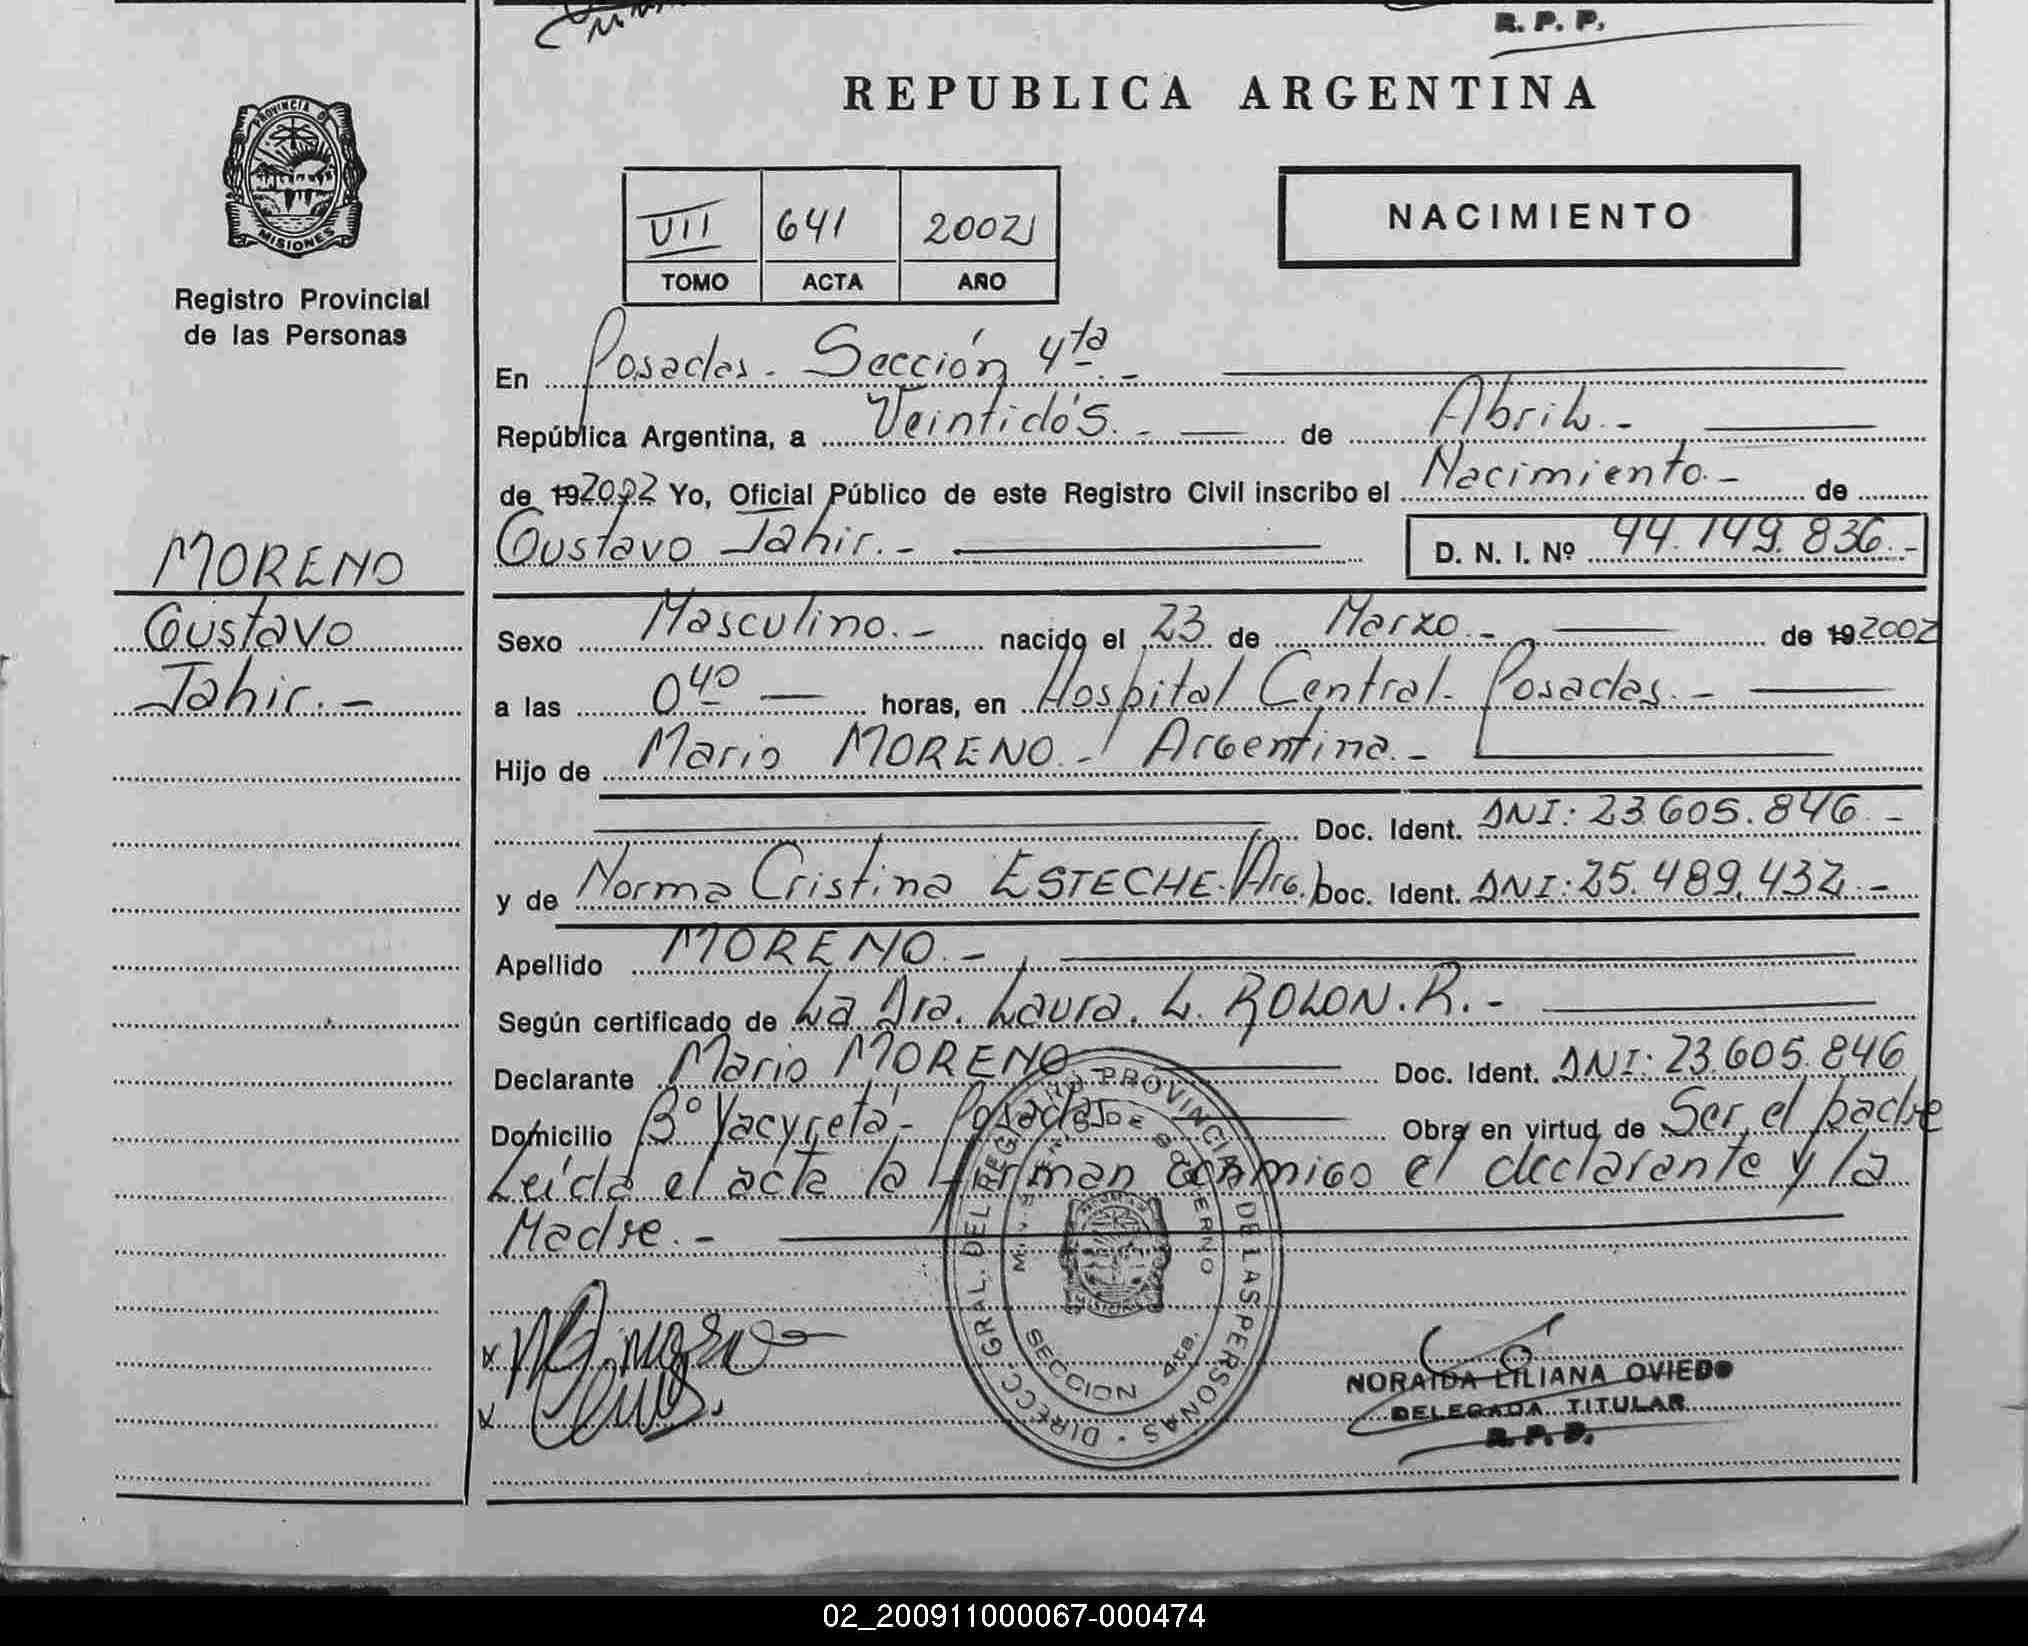 R. P. P.
REPUBLICA ARGENTINA
PROVINCIA DE
MISIONES
Registro Provincial
de las Personas
VII 641 2002
TOMO ACTA AÑO
NACIMIENTO
En Posadas - Sección 4ta. -
República Argentina, a Veintidós. - de Abril. -
de 192002 Yo, Oficial Público de este Registro Civil inscribo el Nacimiento. - de
Gustavo Jahir. - D. N. I. Nº 44.149.836. -
MORENO
Gustavo
Jahir. -
Sexo Masculino. - nacido el 23 de Marzo. - de 192002
a las 0 40 horas, en Hospital Central - Posadas. -
Hijo de Mario MORENO. - Argentina. -
Doc. Ident. DNI: 23.605.846. -
y de Norma Cristina ESTECHE. (Arg.) Doc. Ident. DNI: 25.489.432. -
Apellido MORENO. -
Según certificado de La Dra. Laura. L. ROLON. R. -
Declarante Mario MORENO Doc. Ident. DNI: 23.605.846
Domicilio Bº Yacyretá - Posadas Obra en virtud de Ser el padre
Leída el acta la firman conmigo el declarante y la
Madre. -
DIRECC. GRAL. DEL REGISTRO PROVINCIAL DE LAS PERSONAS
MINIST DE GOBIERNO
SECCION 4ta.
MISIONES
NORAIDA LILIANA OVIEDO
DELEGADA TITULAR
R. P. P.
02_200911000067-000474